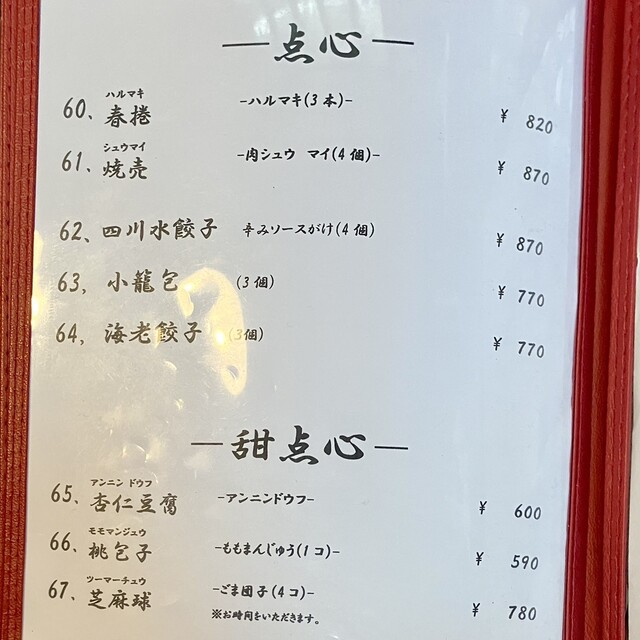 ―点心―
ハルマキ
60、春捲 -ハルマキ(3本)- ¥ 820
シュウマイ
61、焼売 -肉シュウ マイ(4個)- ¥ 870
62、四川水餃子 辛みソースがけ(4個) ¥ 870
63, 小龍包 (3個) ¥ 770
64, 海老餃子 (3個) ¥ 770
―甜点心―
アンニン ドウフ
65、杏仁豆腐 -アンニンドウフ- ¥ 600
モモマンジュウ
66、桃包子 -ももまんじゅう(1コ)- ¥ 590
ツーマーチュウ
67、芝麻球 -ごま団子(4コ)- ¥ 780
※お時間をいただきます。